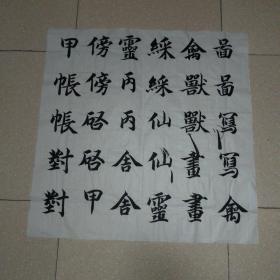 啚啚寫寫禽
禽獸獸畫畫
綵綵仙仙靈
靈丙丙舍舍
傍傍啓啓甲
甲帳帳對對